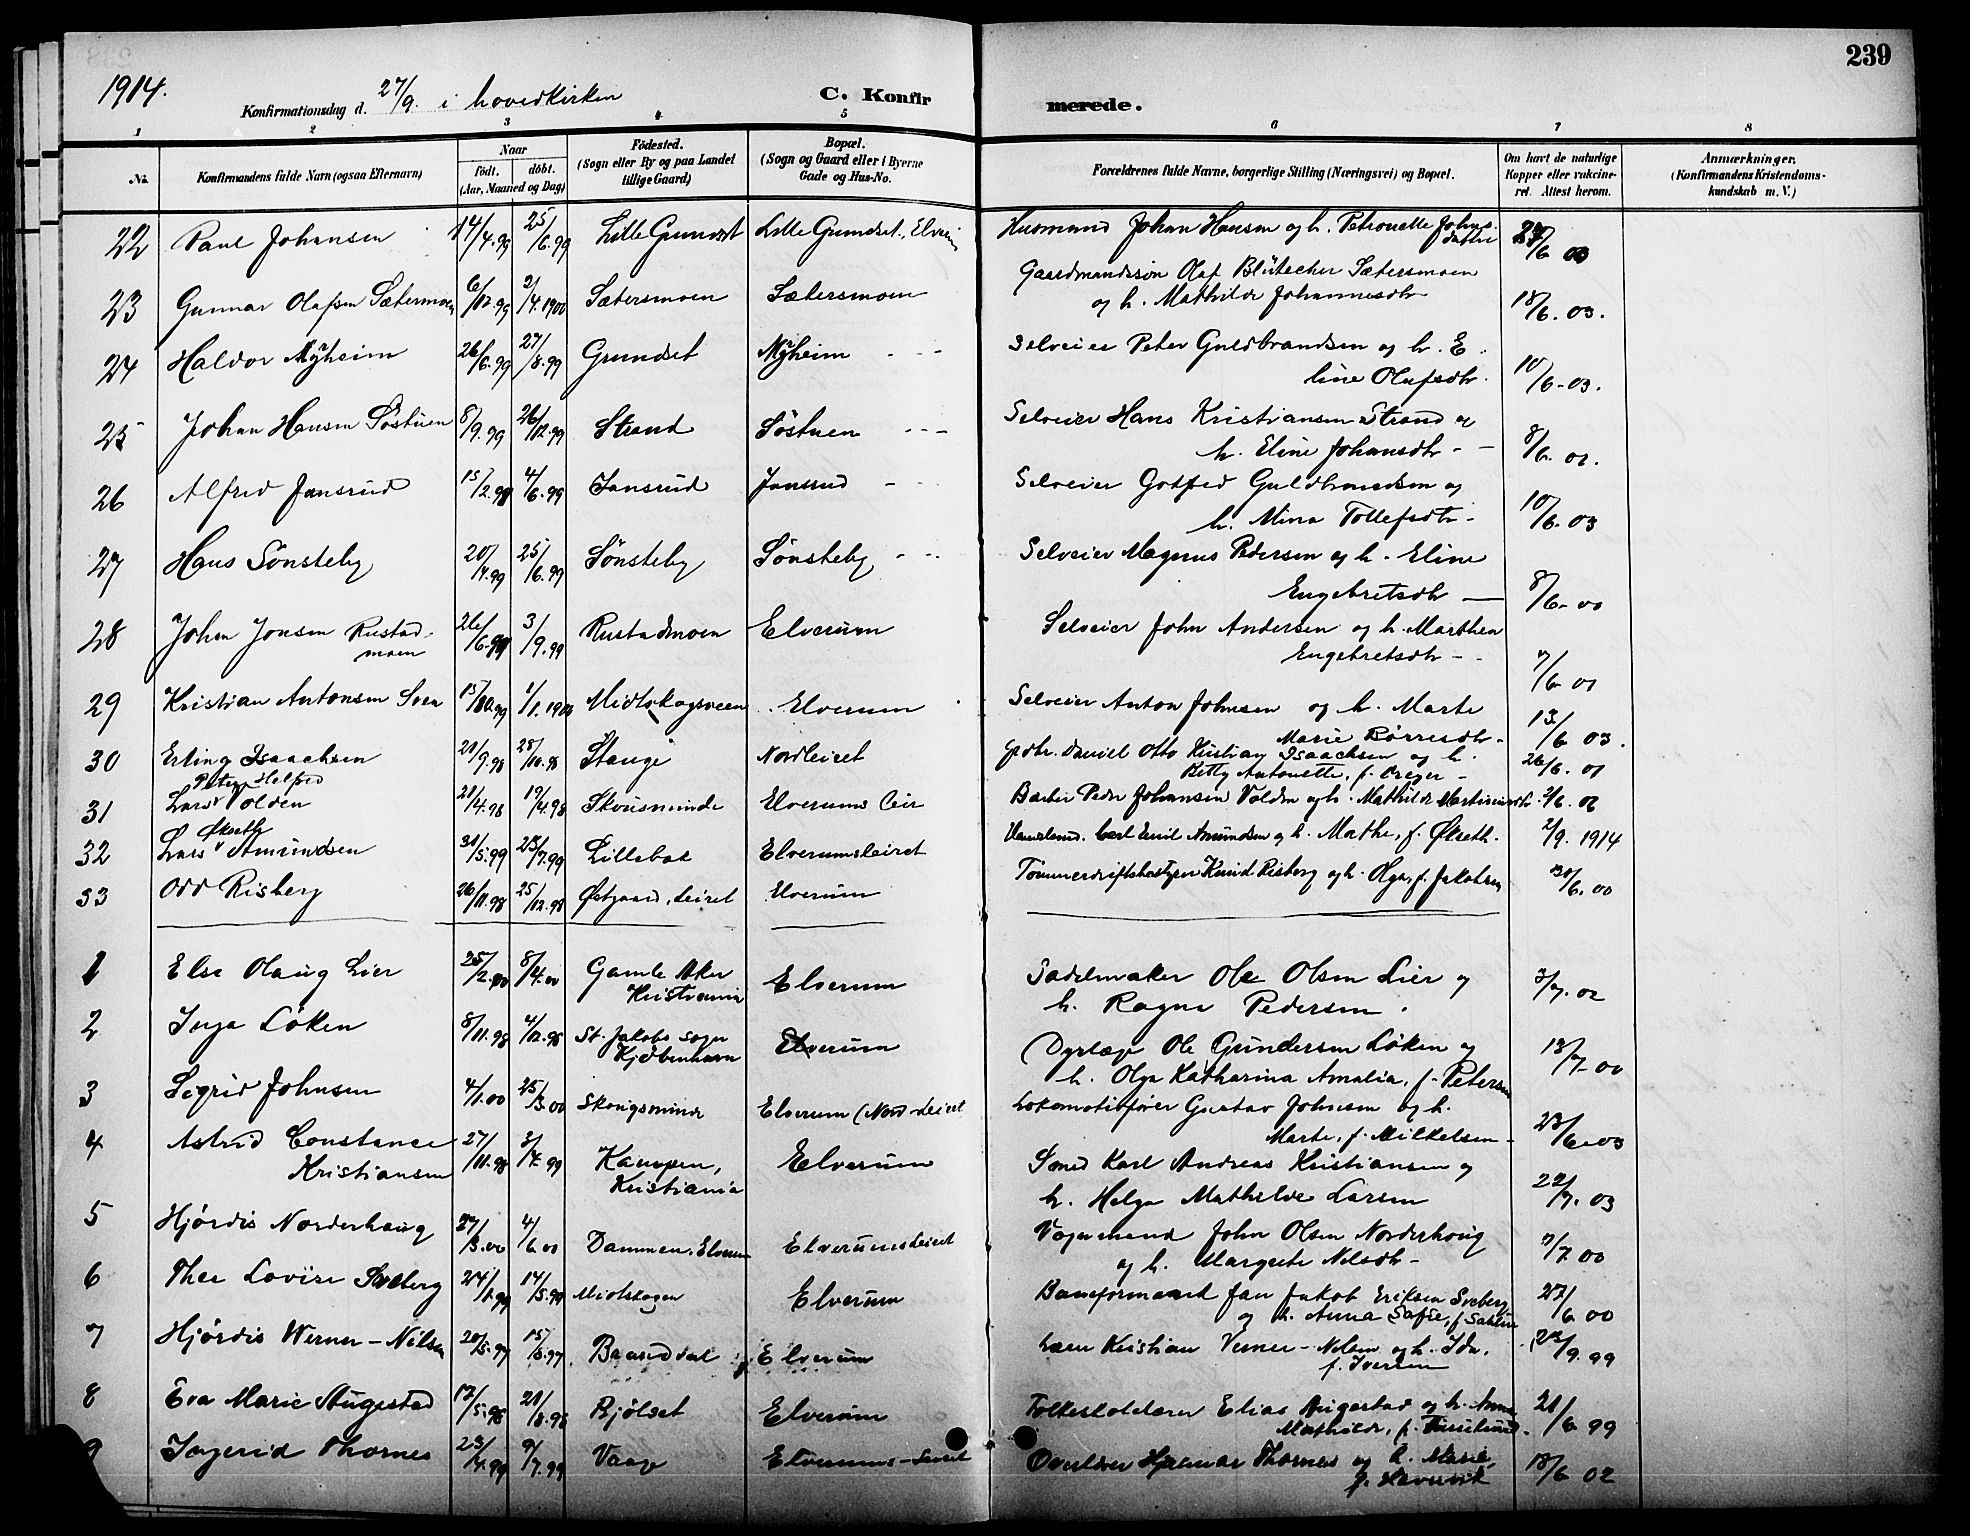 239
1914.
Konfirmationsdag d. 27/9. i hovedkirken
C. Konfirmerede.
1 2 3 4 5 6 7 8
No. Konfirmandens fulde Navn (ogsaa Efternavn) Naar født. døbt. (Aar, Maaned og Dag) Fødested. (Sogn eller By og paa Landet tillige Gaard) Bopæl. (Sogn og Gaard eller i Byerne Gade og Hus-No. Forældrenes fulde Navne, borgerlige Stilling (Næringsvei) og Bopæl. Om havt de naturlige Kopper eller vakcineret. Attest herom. Anmærkninger. (Konfirmandens Kristendomskundskab m. V.)
22 Paul Johansen 14/4.99 25/6.99 Lille Grundset Lille Grundset, Elverum Husmand Johan Hansen og h. Petronelle Johnsdatter /6 00
23 Gunnar Olafsen Sætermoen 6/12.99 2/4.1900 Sætersmoen Sætersmoen Gaardmandssøn Olaf Blütecher Sætersmoen
og h. Mathilde Johannesdtr 18/6.03.
24 Haldor Myheim 26/6.99 27/8.99 Grundset Myheim - - - Selveier Peter Guldbrandsen og h. E.
line Olafsdtr. 10/6-03.
25 Johan Hansen Søstuen 8/9.99 26/12.99 Strand Søstuen - - - Selveier Hans Kristiansen Strand og
h. Eline Johansdtr - - 8/6.01.
26 Alfred Jansrud 15/2.99 4/6.99 Jansrud Jansrud - - Selveier Gotfred Guldbrandsen og
h. Mina Tollefsdtr - 10/6.03
27 Hans Sønsteby 20/4.99 25/6.99 Sønsteby Sønsteby - - Selveier Magnus Pedersen og h. Eline
Engebretsdtr — 8/6-00
28 Johan Jonsen Rustad-
moen 26/6.99 3/9.99 Rustadmoen Elverum Selveier John Andersen og h. Marthea
Engebretsdtr - - 7/6 01
29 Kristian Antonsen Svea 15/10.99 1/1.1900 Midtskogsveen Elverum Selveier Anton Johnsen og h. Marte
Marie Børresdtr - 13/6 03.
30 Erling Isaachsen 21/9.98 28/10.98 Stange Nordleiret Daniel Otto Kristian Isaachsen og h.
Betty Antonette, f. Creger - 26/6.01
31 Lars Peter Helfred Volden 21/4.98 19/4.98 Skousminde Elverums leir Barber Peder Johansen Volden og h. Mathilde Martinusdtr. 2/6.02
32 Lars Økseth Amundsen 31/5.99 23/7.99 Lillebak Elverumsleiret Carl Emil Amundsen og h. Mathe, f. Økseth. 2/9.1914
33 Odd Risberg 26/11.98 25/12.98 Østgaard, Leiret Elverum Tømmerdriftsbestyrer Knud Risberg og h. Olga, f. Jakobsen 30/6.00
1 Else Olaug Lier 25/2.00 8/4.00 Gamle Aker
Kristiania Elverum Sadelmaker Ole Olsen Lier og
h. Ragna Pedersen. 3/7.02
2 Inga Løken 8/11.98 4/12.98 St. Jakobs sogn
Kjøbenhavn Elverum Dyrlæge Ole Gundersen Løken og
h. Olga Katharina Amalia, f. Petersen 13/7-00
3 Sigrid Johnsen 4/1.00 25/3.00 Skougsminde Elverum (Nord-Leiret Lokomotivfører Gustav Johnsen og h.
Marte, f. Mikkelsen - 23/6-03
4 Astrid Constance
Kristiansen 27/11.98 3/4.99 Kampen,
Kristiania Elverum Smed Karl Andreas Kristiansen og
h. Helga Mathilde Larsen 22/7.03
5 Hjørdis Norderhaug 27/3.00 4/6.00 Dammen, Elverum Elverumsleiret Vognmand John Olsen Norderhoug
og h. Margrete Nilsdtr - 3/7.00
6 Thea Lovise Sveberg 24/1.99 14/5.99 Midtskogen Elverum Baneformand Jan Jakob Eriksen Sveberg
og h. Anna Sofie, f. 27/6 00
7 Hjørdis Werner-Nilsen 20/5.97 15/8.97 Brandval Elverum Kristian Verner-Nilsen og h. Ida,
f. Iversen 23/9.99
8 Eva Marie Augestad 17/5.98 21/8.98 Bjølset Elverum Folkeskolelærer Elias Augestad og h. Anna
Mathilde, f. 21/6 99
9 Ingerid Thornes 23/4.99 9/7.99 Vaage Elverums-Leiret Overlærer Hjalmar Thornes og h. Marie,
f. 18/6 02